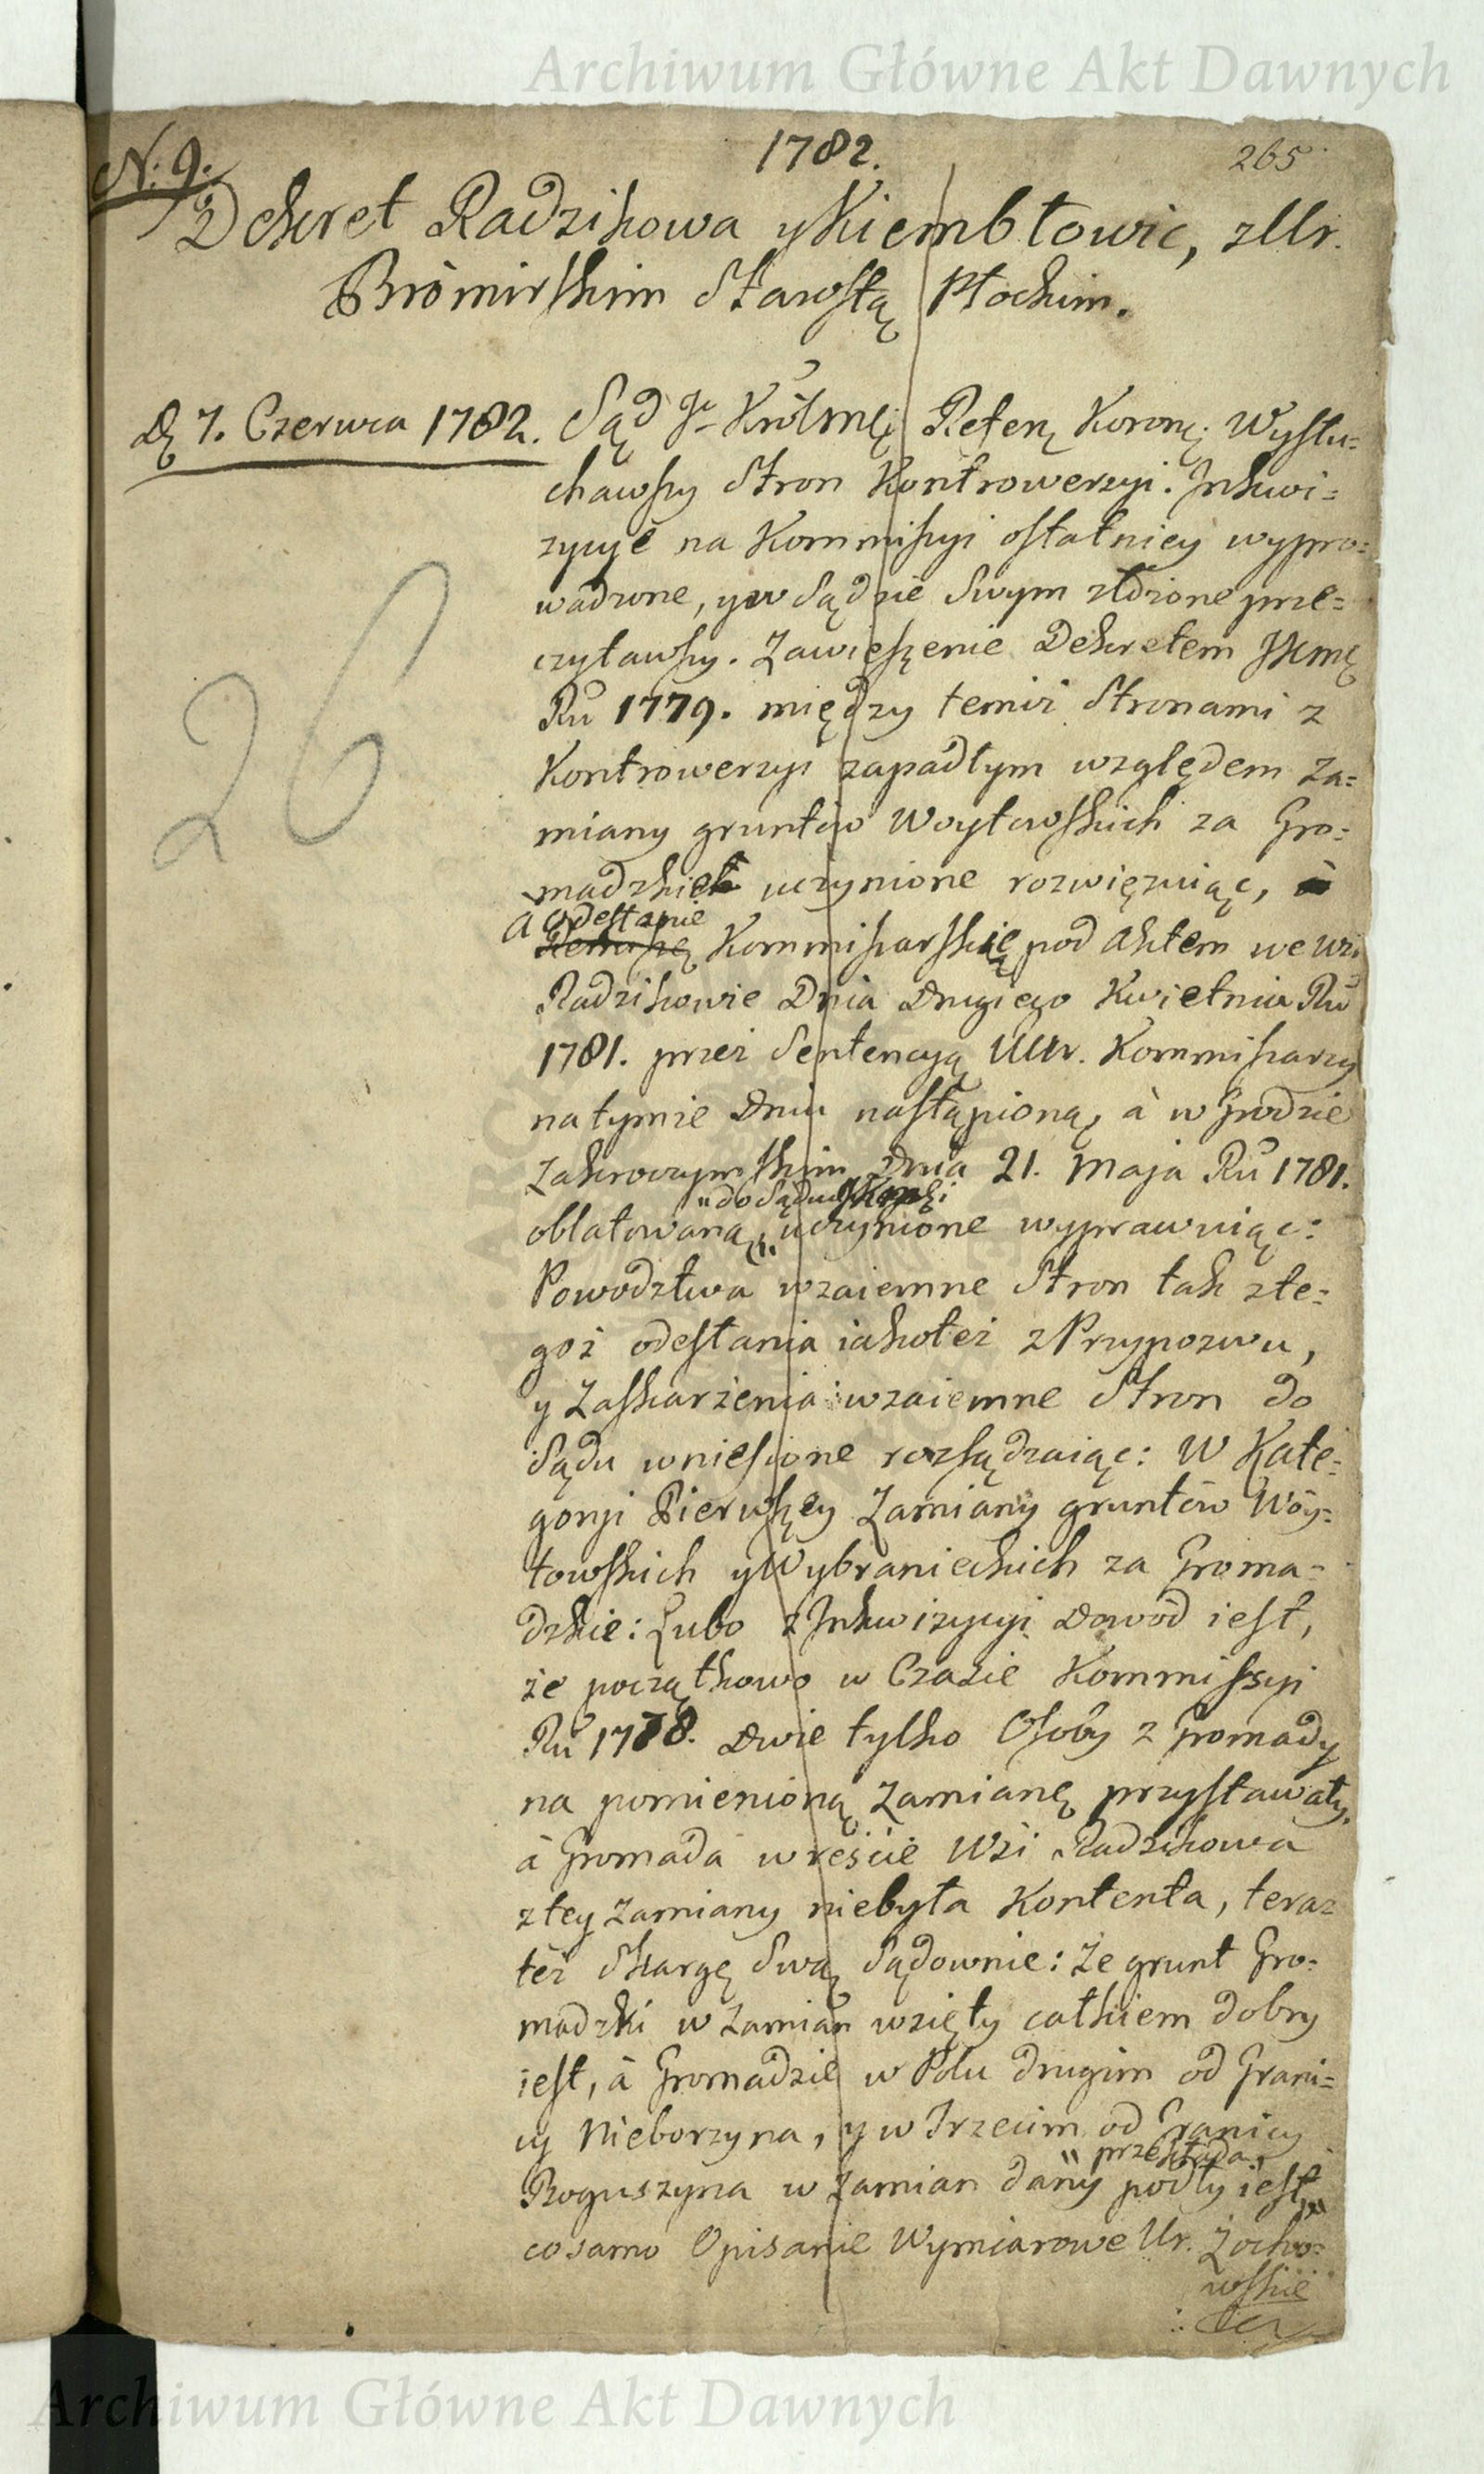 Archiwum Główne Akt Dawnych
N. 9.
1782.
265
Dekret Radzikowa y Kiembłowic, z Ur.
Bromirskim Starostą Płockim.
D. 7. Czerwca 1782. Sąd Je KrólMci Referń Koronń Wysłu-
chawszy Stron Kontrowersyi. Inkwi-
zycye na Kommissyi ostatniey wypro-
wadzone, y w Sądzie Swym złożone prze-
czytawszy. Zawieszenie Dekretem JKmci
Ru 1779. między temiż Stronami z
Kontrowersyi zapadłym względem Za-
miany gruntów Woytowskich za Gro-
madzkie uczynione rozwięzuiąc,
a odesłanie
Kommissarskie pod Aktem we wsi
Radzikowie Dnia Drugiego Kwietnia Ru
1781. przez Sentencyą UUr. Kommissarzy
na tymże Dniu nastąpioną, à w Grodzie
Zakroczymskim Dnia 21. Maja Ru 1781.
"do Sądu
oblatowaną, uczynione wyprawuiąc:
Powodztwa wzaiemne Stron tak z te-
goż odesłania iakoteż z Przypozwu,
y Zaskarżenia wzaiemne Stron do
Sądu wniesione rozsądzaiąc: W Kate-
goryi Pierwszey Zamiany gruntów Wóy-
towskich y Wybranieckich za Groma-
dzkie: Lubo z Inkwizycyi Dowód iest,
że początkowo w Czasie Kommissyi
Ru 1778. Dwie tylko Osoby z Gromady
na pomienioną Zamianę przystawały,
à Gromada w reście Wsi Radzikowa
z tey Zamiany niebyła Kontenta, teraz
też Skargę Swą Sądownie: że grunt Gro-
madzki w Zamian wzięty całkiem dobry
iest, à Gromadzie w Polu drugim od Grani-
cy Nieborzyna, y w Trzecim od Granicy
" przekłada,
Boguszyna w Zamian dany podły iest,"
co samo Opisanie Wymiarowe Ur. Żocho-
wskie
26
Archiwum Główne Akt Dawnych